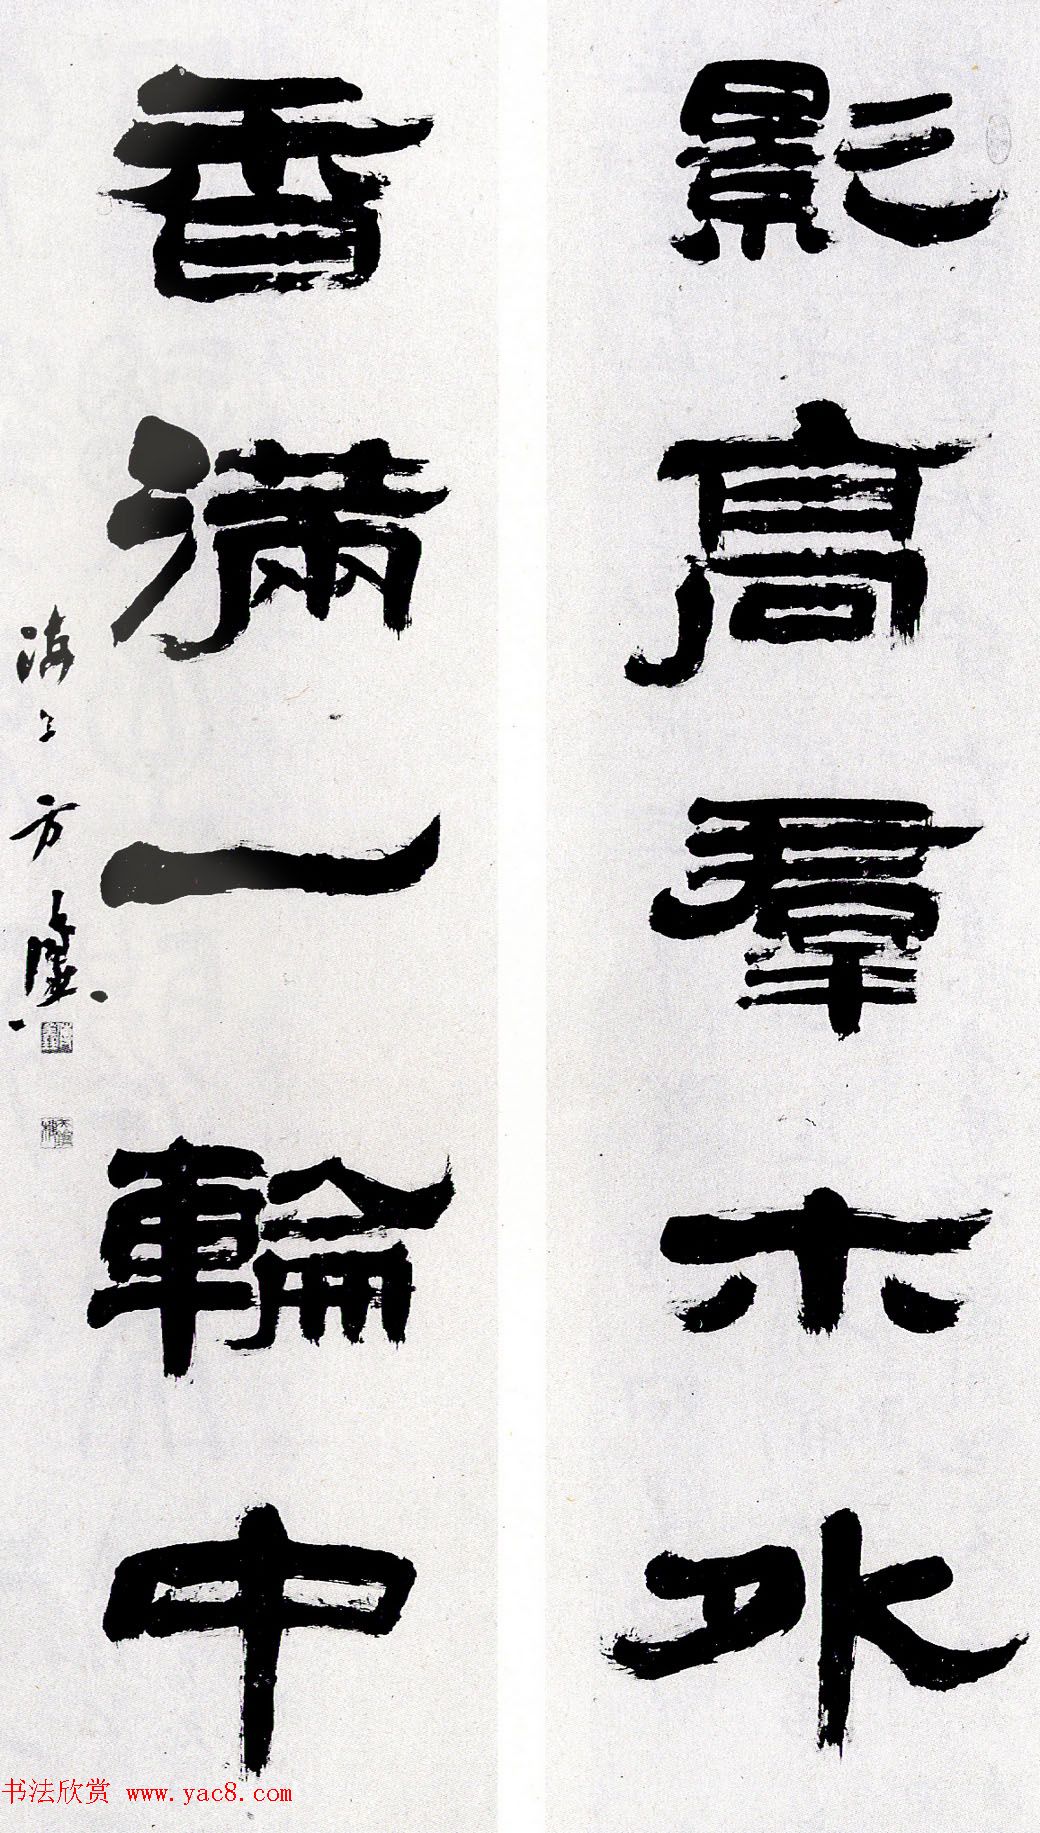 影高羣木外
香滿一輪中
海上方
书法欣赏 www.yac8.com